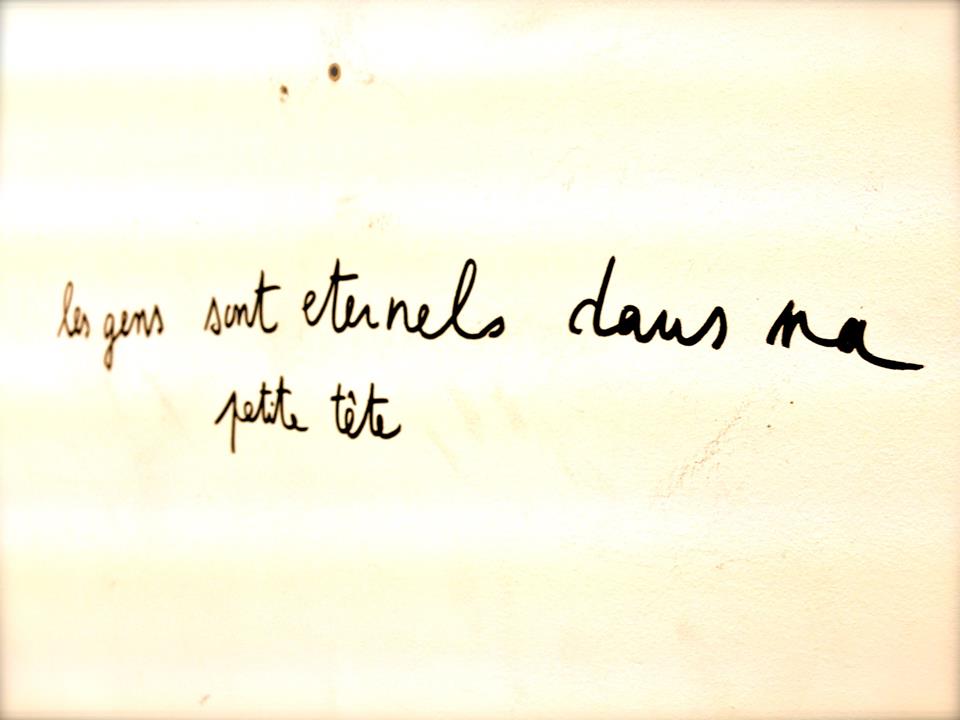 les gens sont eternels dans ma
petite tête